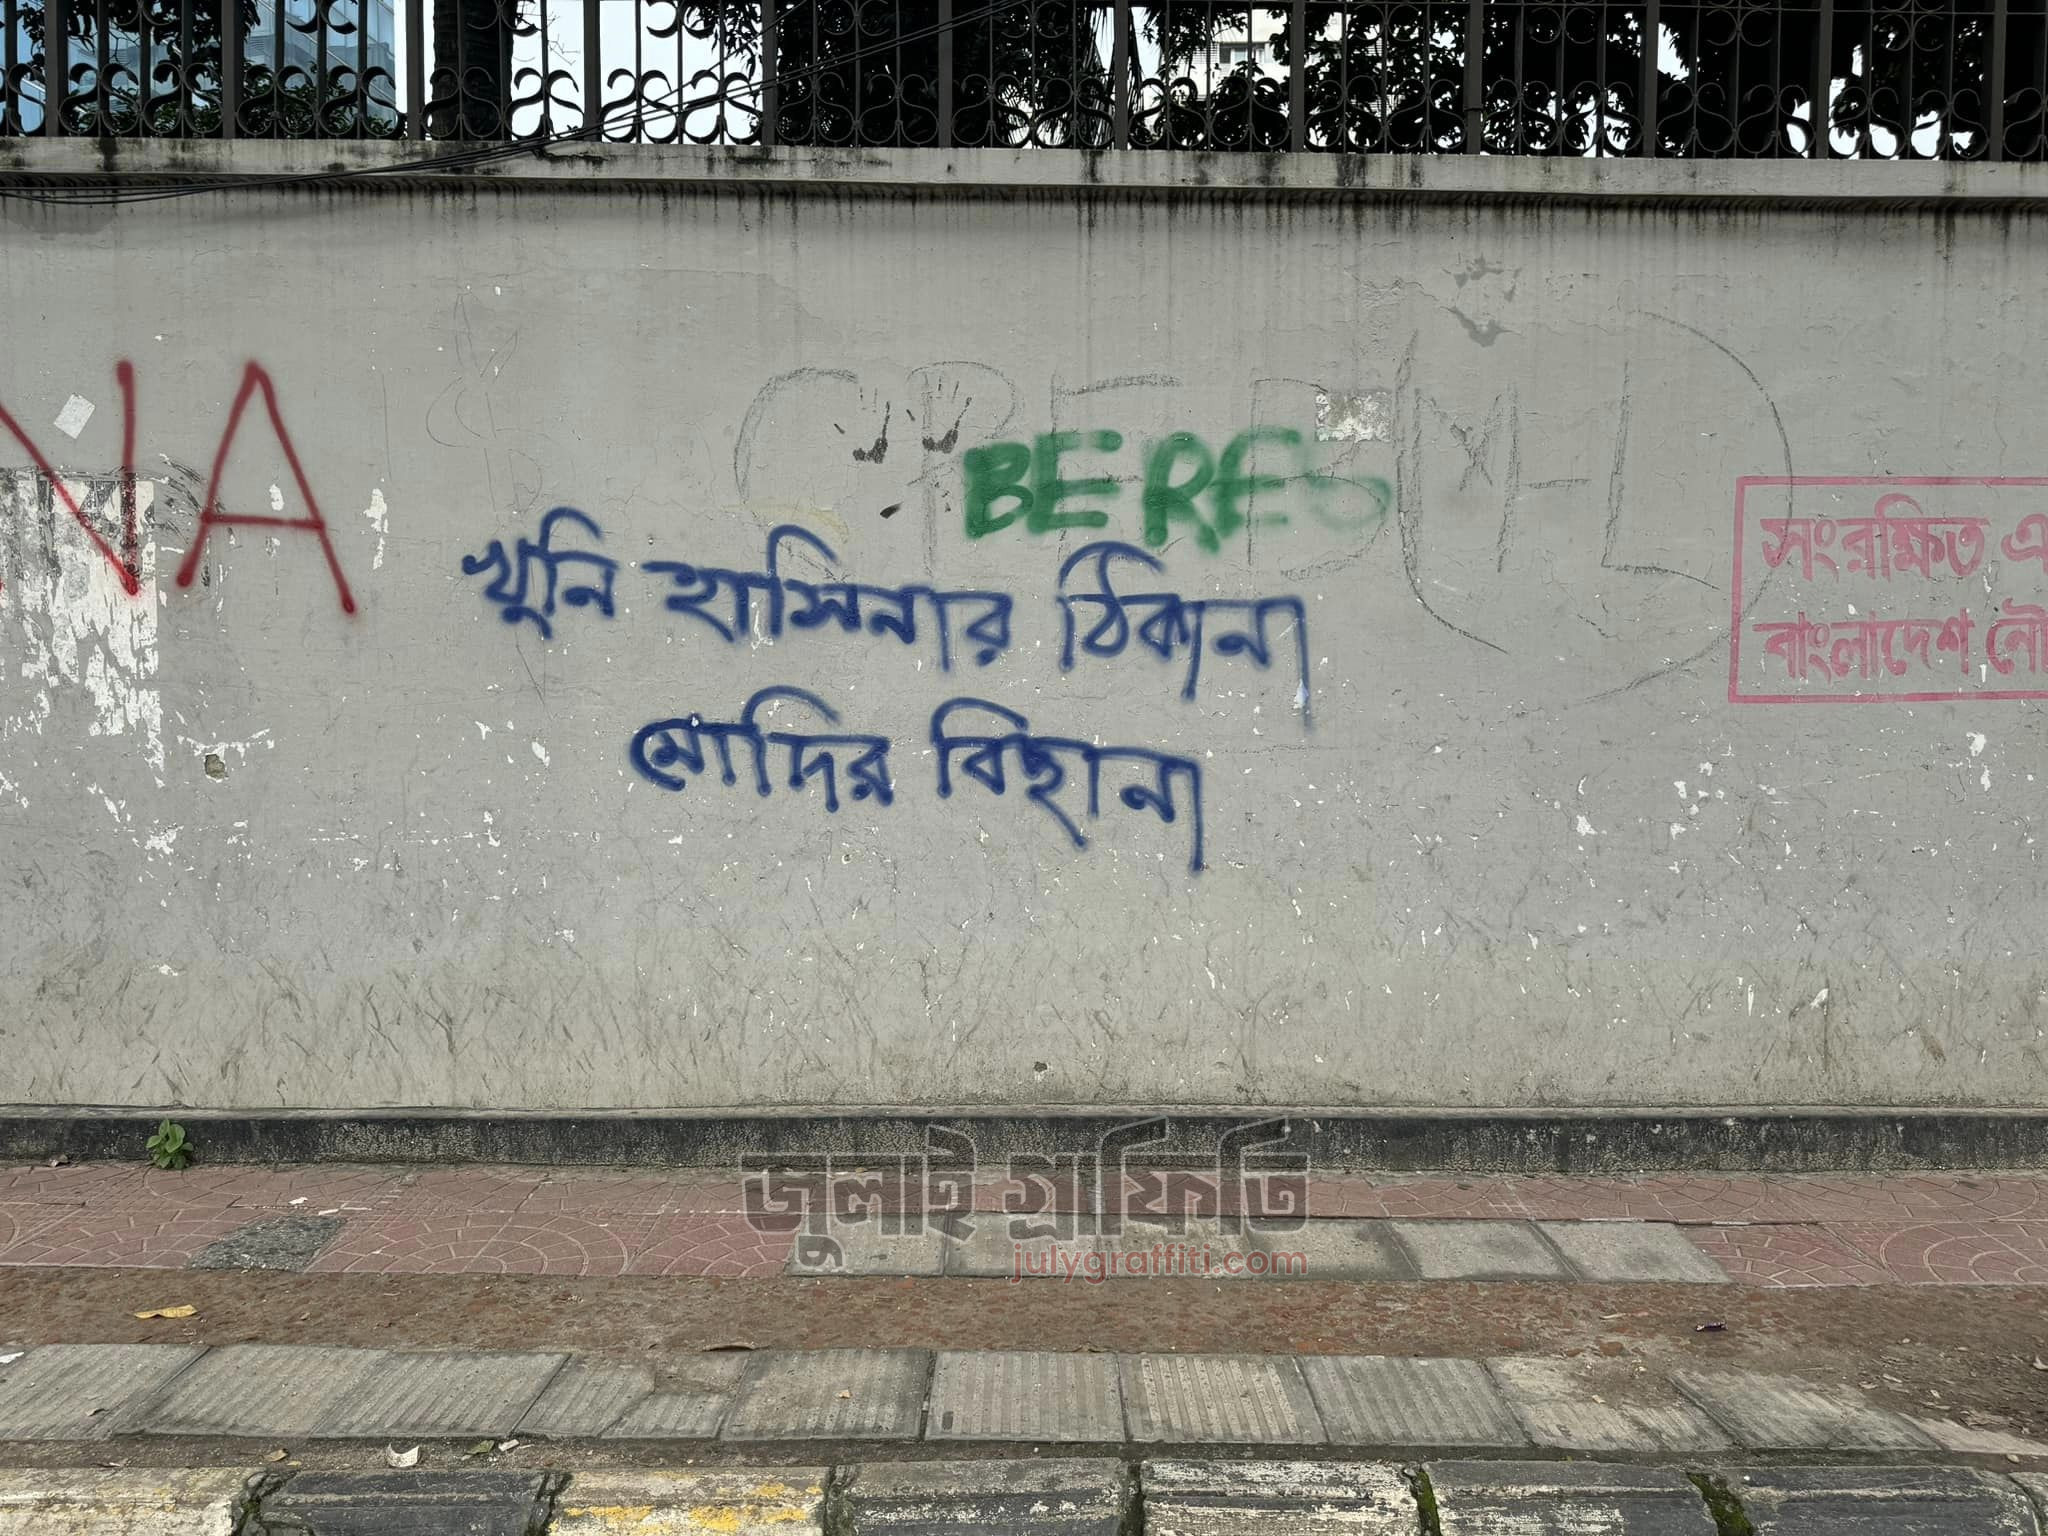 NA
BERES
খুনি হাসিনার ঠিকানা
মোদির বিছানা
সংরক্ষিত এ
বাংলাদেশ নৌ
জুলাই গ্রাফিতি
julygraffiti.com